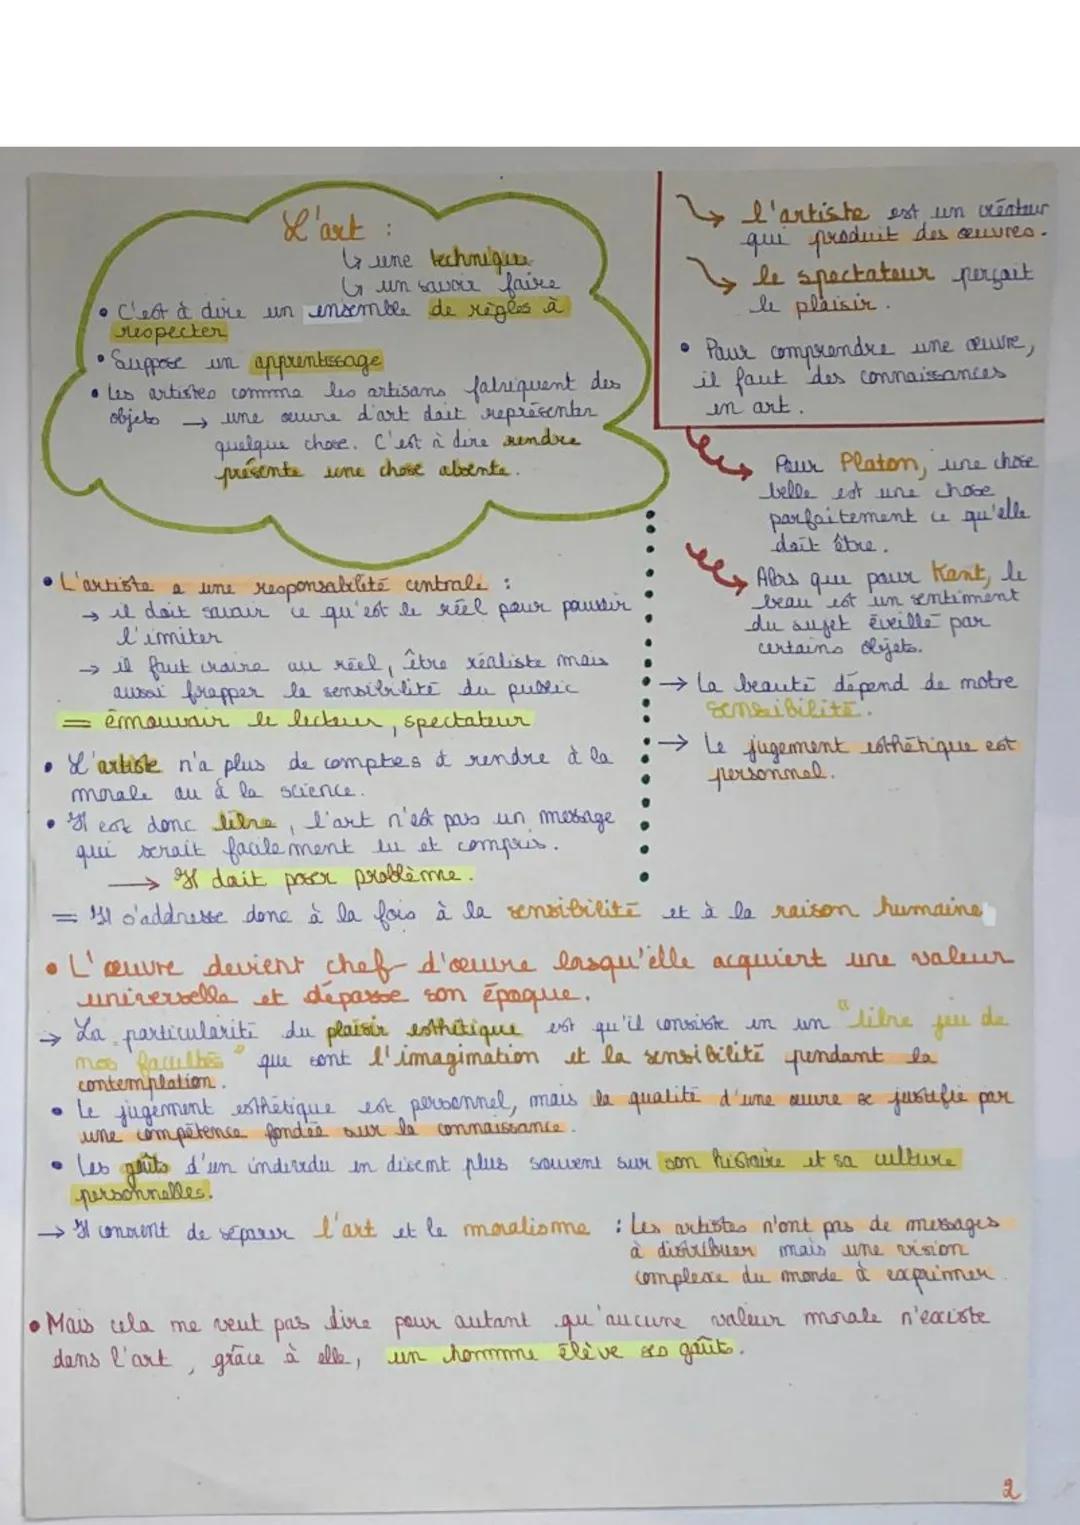 L'art :
↳ une technique
↳ un savoir faire
• C'est à dire un ensemble de règles à
respecter
• Suppose un apprentissage
• Les artistes comme les artisans fabriquent des
objets → une œuvre d'art doit représenter
quelque chose. C'est à dire rendre
présente une chose absente.
↳ l'artiste est un créateur
qui produit des œuvres.
↳ le spectateur perçait
le plaisir.
• Pour comprendre une œuvre,
il faut des connaissances
en art.
→ Pour Platon, une chose
belle est une chose
parfaitement ce qu'elle
doit être.
→ Alors que pour Kant, le
beau est un sentiment
du sujet éveillé par
certains objets.
→ La beauté dépend de notre
sensibilité.
→ Le jugement esthétique est
personnel.
• L'artiste a une responsabilité centrale :
→ il doit savoir ce qu'est le réel pour pouvoir
l'imiter
→ il faut croire au réel, être réaliste mais
aussi frapper la sensibilité du public
= émouvoir le lecteur, spectateur
• L'artiste n'a plus de comptes à rendre à la
morale ou à la science.
• Il est donc libre, l'art n'est pas un message
qui serait facilement lu et compris.
→ Il doit poser problème.
= Il s'addresse donc à la fois à la sensibilité et à la raison humaine
• L'œuvre devient chef d'œuvre lorsqu'elle acquiert une valeur
universelle et dépasse son époque.
→ La particularité du plaisir esthétique est qu'il consiste en un "libre jeu de
nos facultés" que sont l'imagination et la sensibilité pendant la
contemplation.
• Le jugement esthétique est personnel, mais la qualité d'une œuvre se justifie par
une compétence fondée sur la connaissance.
• Les goûts d'un individu en disent plus souvent sur son histoire et sa culture
personnelles.
→ Il convient de séparer l'art et le moralisme : Les artistes n'ont pas de messages
à distribuer mais une vision
complexe du monde à exprimer.
• Mais cela ne veut pas dire pour autant qu'aucune valeur morale n'existe
dans l'art, grâce à elle, un homme élève ses goûts.
2